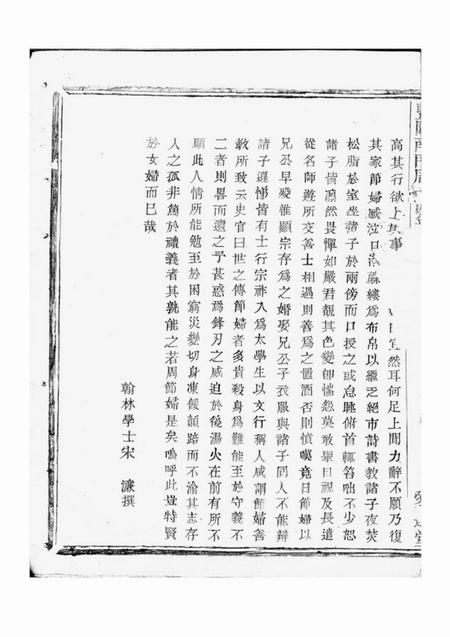 高其行欲上其事 宜然耳何足上聞力辭不願乃復
其家節婦感泣日 縷為布帛以繼乏絕市詩書教諸子夜焚
松脂於室坐諸子於兩傍而口授之或怠睡俯首輒笞咄不少恕
諸子皆凛然畏憚如嚴君覩其色變卽惴怨莫敢舉目視及長遣
從名師遊所交善士相過則善為之置酒否則憤嘆竟日節婦以
兄公早歿惟顯宗存為之婚娶兄公子衣服與諸子同人不能辨
諸子遜悌皆有士行宗祚入為太學生以文行稱人咸謂節婦善
教所致云史官曰世之傳節婦者多貴殺身為難能至於守義不
二者則畧而遺之予甚惑焉鋒刃之威迫於後湯火在前有所不
顧此人情所能勉至於困窮災變切身凍餒顛踣而不渝其志存
人之孤非篤於禮義者其孰能之若周節婦是矣嗚呼此豈特賢
於女婦而已哉
翰林學士宋 濂撰